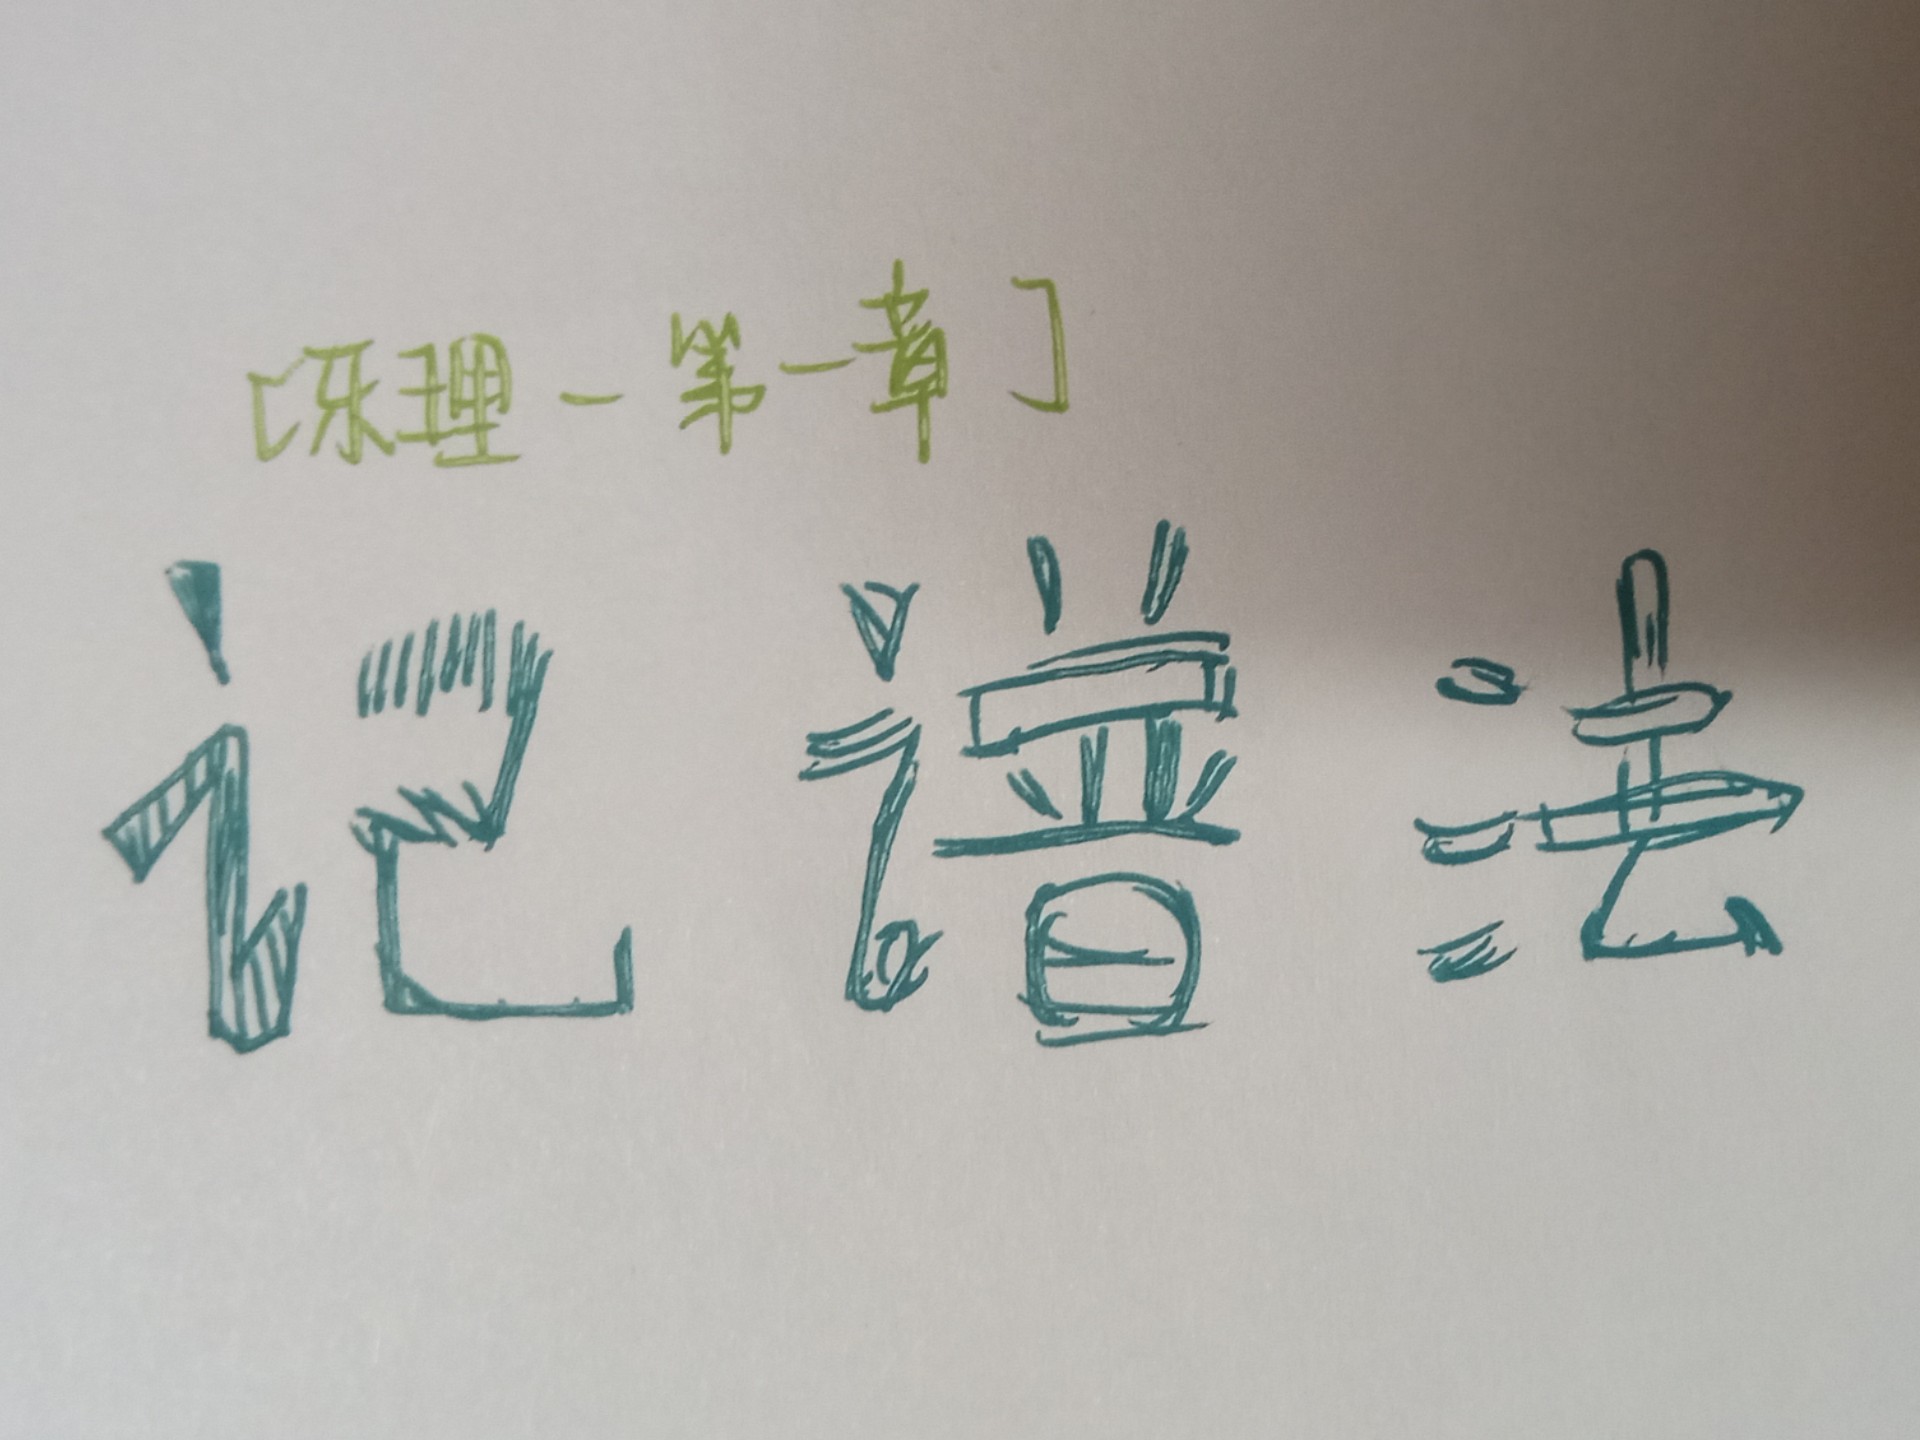 [乐理-第一章]
记谱法